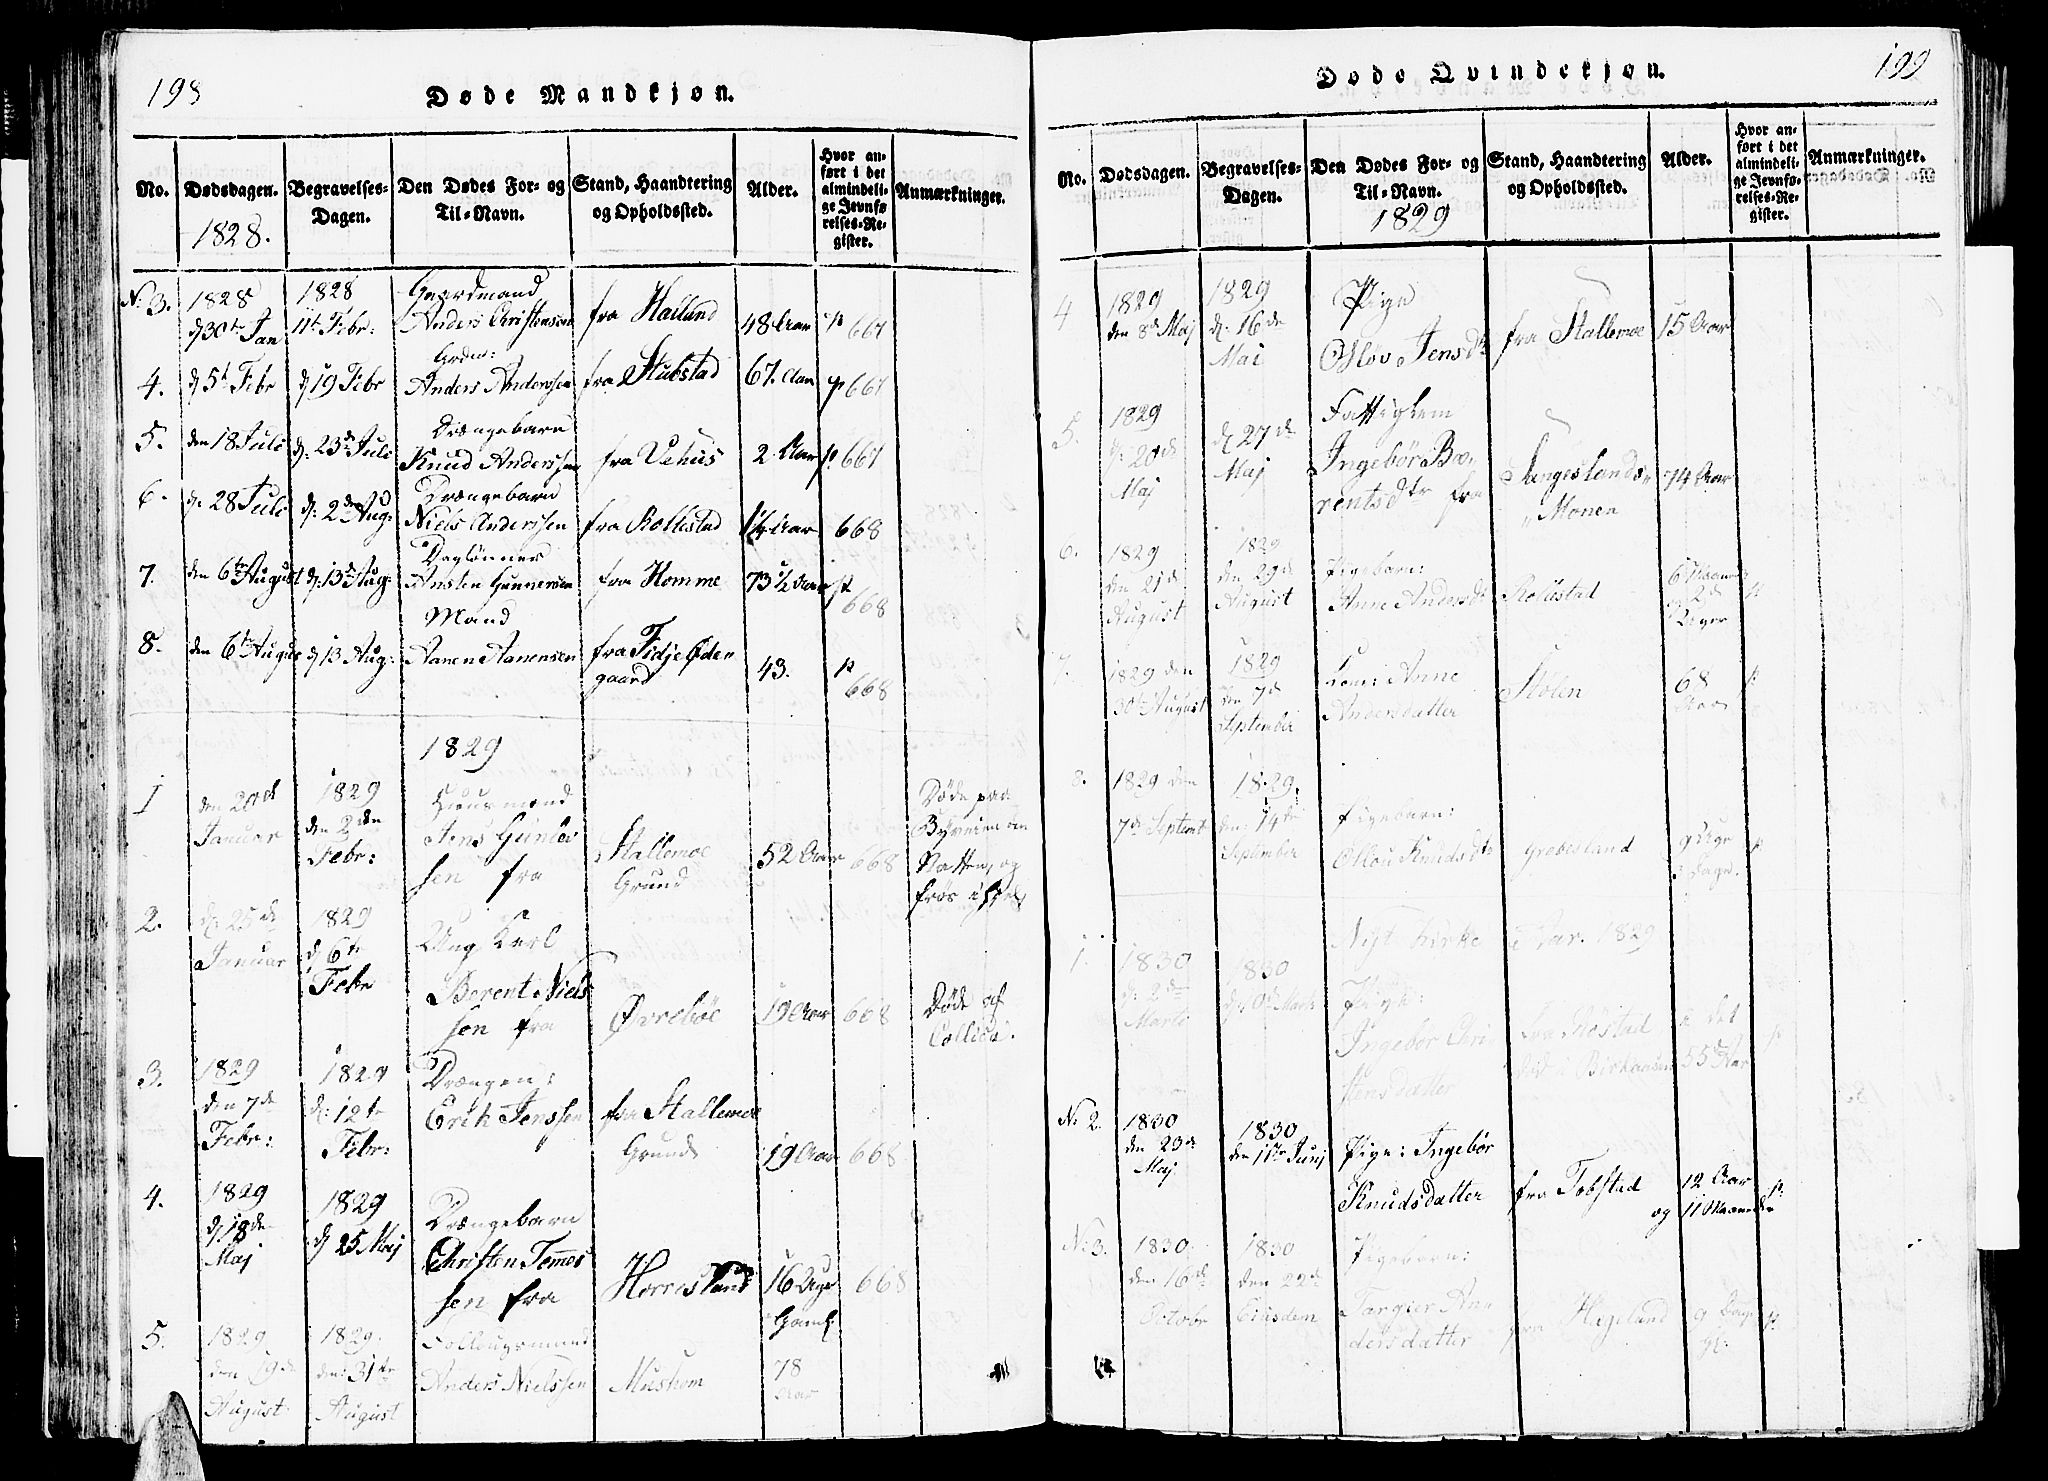 198
Døde Mandkjøn.
No. Dødsdagen. Begravelses-Dagen. Den Dødes For- og Til-Navn. Stand, Haandtering og Opholdssted. Alder. Hvor anført i det almindelige Jevnførelses-Register. Anmærkninger.
1828.
No 3. 1828 d 30te Jan 1828 11t Febr: Gaardmand Anders Christensen fra Halland 48 Aar p 667
4. d 5t Febr d 19 Febr Grdm: Anders Anderssen fra Stubstad 67. Aar p 667
5. den 18 Juli d. 23de Juli Drængebarn Knud Anderssen fra Vehus 2 Aar p 667
6. d. 28 Juli d. 2den Aug: Drængebarn Niels Anderssen fra Rollestad 1 1/2 Aar 668
7. den 6te August d. 13de Aug: Daglønner Ansten Gunnersen fra Homme 73 1/2 Aar p 668
8. den 6te Augus d 13 Aug: Mand Aanen Aanensen fra Fidje Ødegaard 43. p 668
1829
1 den 20de Januar 1829 den 2den Febr: Huusmand Jens Gunlevsen fra Stallemoe Grund 52 Aar 668 Døde paa Byveien om Natten, og frøs ihjel
2. d. 25de Januar 1829 d 6te Febr Ung Karl Berent Nielssen fra Øvrebøe 19 Aar 668 Døde af Collica.
3. 1829 den 7de Febr: 1829 d. 12te Febr: Drængen: Erik Jenssen fra Stallemoe Grund 19 Aar 668
4. 1829 d 18de Maj 1829 d 25 Maj Drængebarn Christen Tommessen fra Horresland 16 Uger Gaml. 668
5. 1829 den 19de August 1829. den 31te August Folleugsmand Anders Nielssen Mushom 78 Aar
199
Døde Qvindekjøn.
No. Dødsdagen. Begravelses-Dagen. Den Dødes For- og Til-Navn. Stand, Haandtering og Opholdssted. Alder. Hvor anført i det almindelige Jevnførelses-Register. Anmærkninger.
1829
4 1829 den 8de Maj 1829 d. 16de Mai Pige Osløv Jensdtr fra Stallemoe 15 Aar
5. 1829 d. 20de Maj d. 27de Maj Fattiglem Ingebør Berentsdtr fra Langeslands Monen 74 Aar
6. 1829 den 21de August 1829 den 29de August Pigebarn: Anne Andersdtr Rollestad 6 Maaneder 2de Uger p
7. 1829 den 30te August 1829 den 7de September Kone: Anne Andersdatter Stolen 68 Aar p
8. 1829 den 7de Septembr 1829. den 14te September Pigebarn: Oslou Knudsdtr Grobesland 9 Uger 3 Dage. p
Nyt Kirke Aar. 1829
1. 1830 d. 2den Marts 1830 Marts Pige: Ingebor Christensdatter fra Røstad i det 55de Aar p
No 2. 1830 den 23de Maj 1830 den 1ste Junj Pige: Ingebør Knudsdatter fra Tobstad 12 Aar og 11 Maaneder p.
No 3. 1830. den 16de Octobr 1830 den 22de Ejusdem Pigebarn: Targier Andersdatter fra Hageland 9 Dage gl. p.